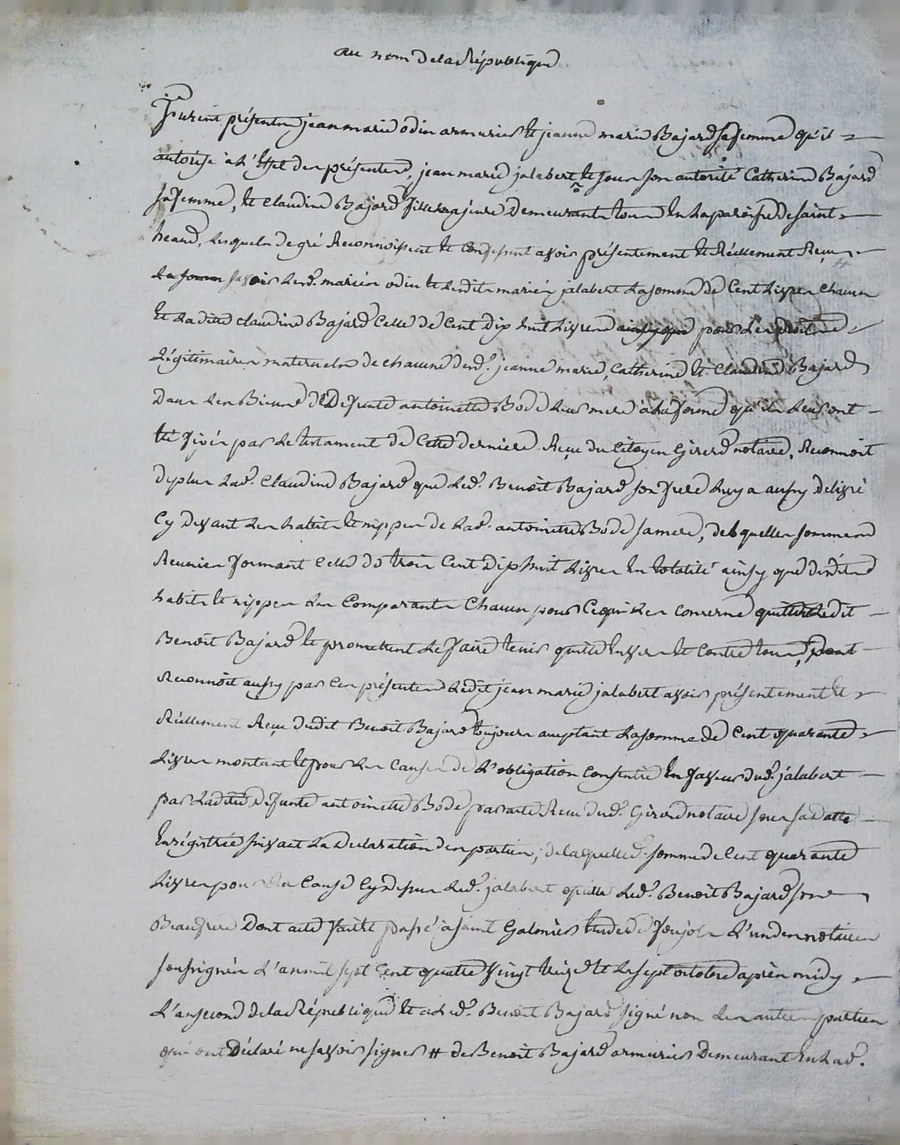 au nom de la République
Furent présents jean marie odin armurier et jeanne marie Bajard sa femme qu'il
autorise a L'effet des présentes, jean marie jalabert et sous son autorité Catherine Bajard
sa femme, et Claudine Bajard fille majeure Demeurants tous En la paroisse de saint
heand, lesquels de gré Reconnoissent et Confessent avoir présentement et Réellement Reçu
la somme savoir Lesd. mariés odin et lesdits mariés jalabert La somme de Cent Livres chacun
Et Ladite Claudine Bajard Celle de Cent dix huit Livres pour Les droits
Légitimaires maternels de chacune desd. jeanne marie, Catherine et Claudine Bajard
Dans Les Biens de Défunte antoinette Bode Leur mere a la forme qu'ils Leur ont
été fixés par Le testament de Cette derniere Reçu du Citoyen Girerd notaire, Reconnoit
de plus Lad. Claudine Bajard que Led. Benoit Bajard son frere Luy a aussy délivré
Cy devant Les habits et nippes de Lad. antoinette Bode sa mere, desquelles sommes
Reunies formant Celle de trois Cent dix huit Livres En totalité ainsy que desdits
habits et nippes Les Comparants Chacun pour Ce qui Les Concerne quittent Ledit
Benoit Bajard et promettent Le faire tenir quitte Envers et Contre tous,
Reconnoit aussy par Ces présentes Ledit jean marie jalabert avoir présentement Et
Réellement Reçu dudit Benoit Bajard toujours acceptant La somme de Cent quarante
Livres montant Et pour Les Causes de L'obligation Consentie En faveur dud. jalabert
par Ladite Défunte antoinette Bode par acte Reçu dud. Girerd notaire sous sa datte
Enrégistrée suivant La Déclaration des parties, de laquelle d. somme de Cent quarante
Livres pour La Cause Cy dessus Led. jalabert quitte Led. Benoit Bajard son
Beaufrere Dont acte fait et passé a saint Galmier Etude de L'un des notaires
soussignés L'an mil sept Cent quatre vingt treize et Le sept octobre après midy
L'an second de la République et a Led. Benoit Bajard signé non Les autres parties
qui ont Déclaré ne savoir signer # de Benoit Bajard armurier Demeurant En Lad.